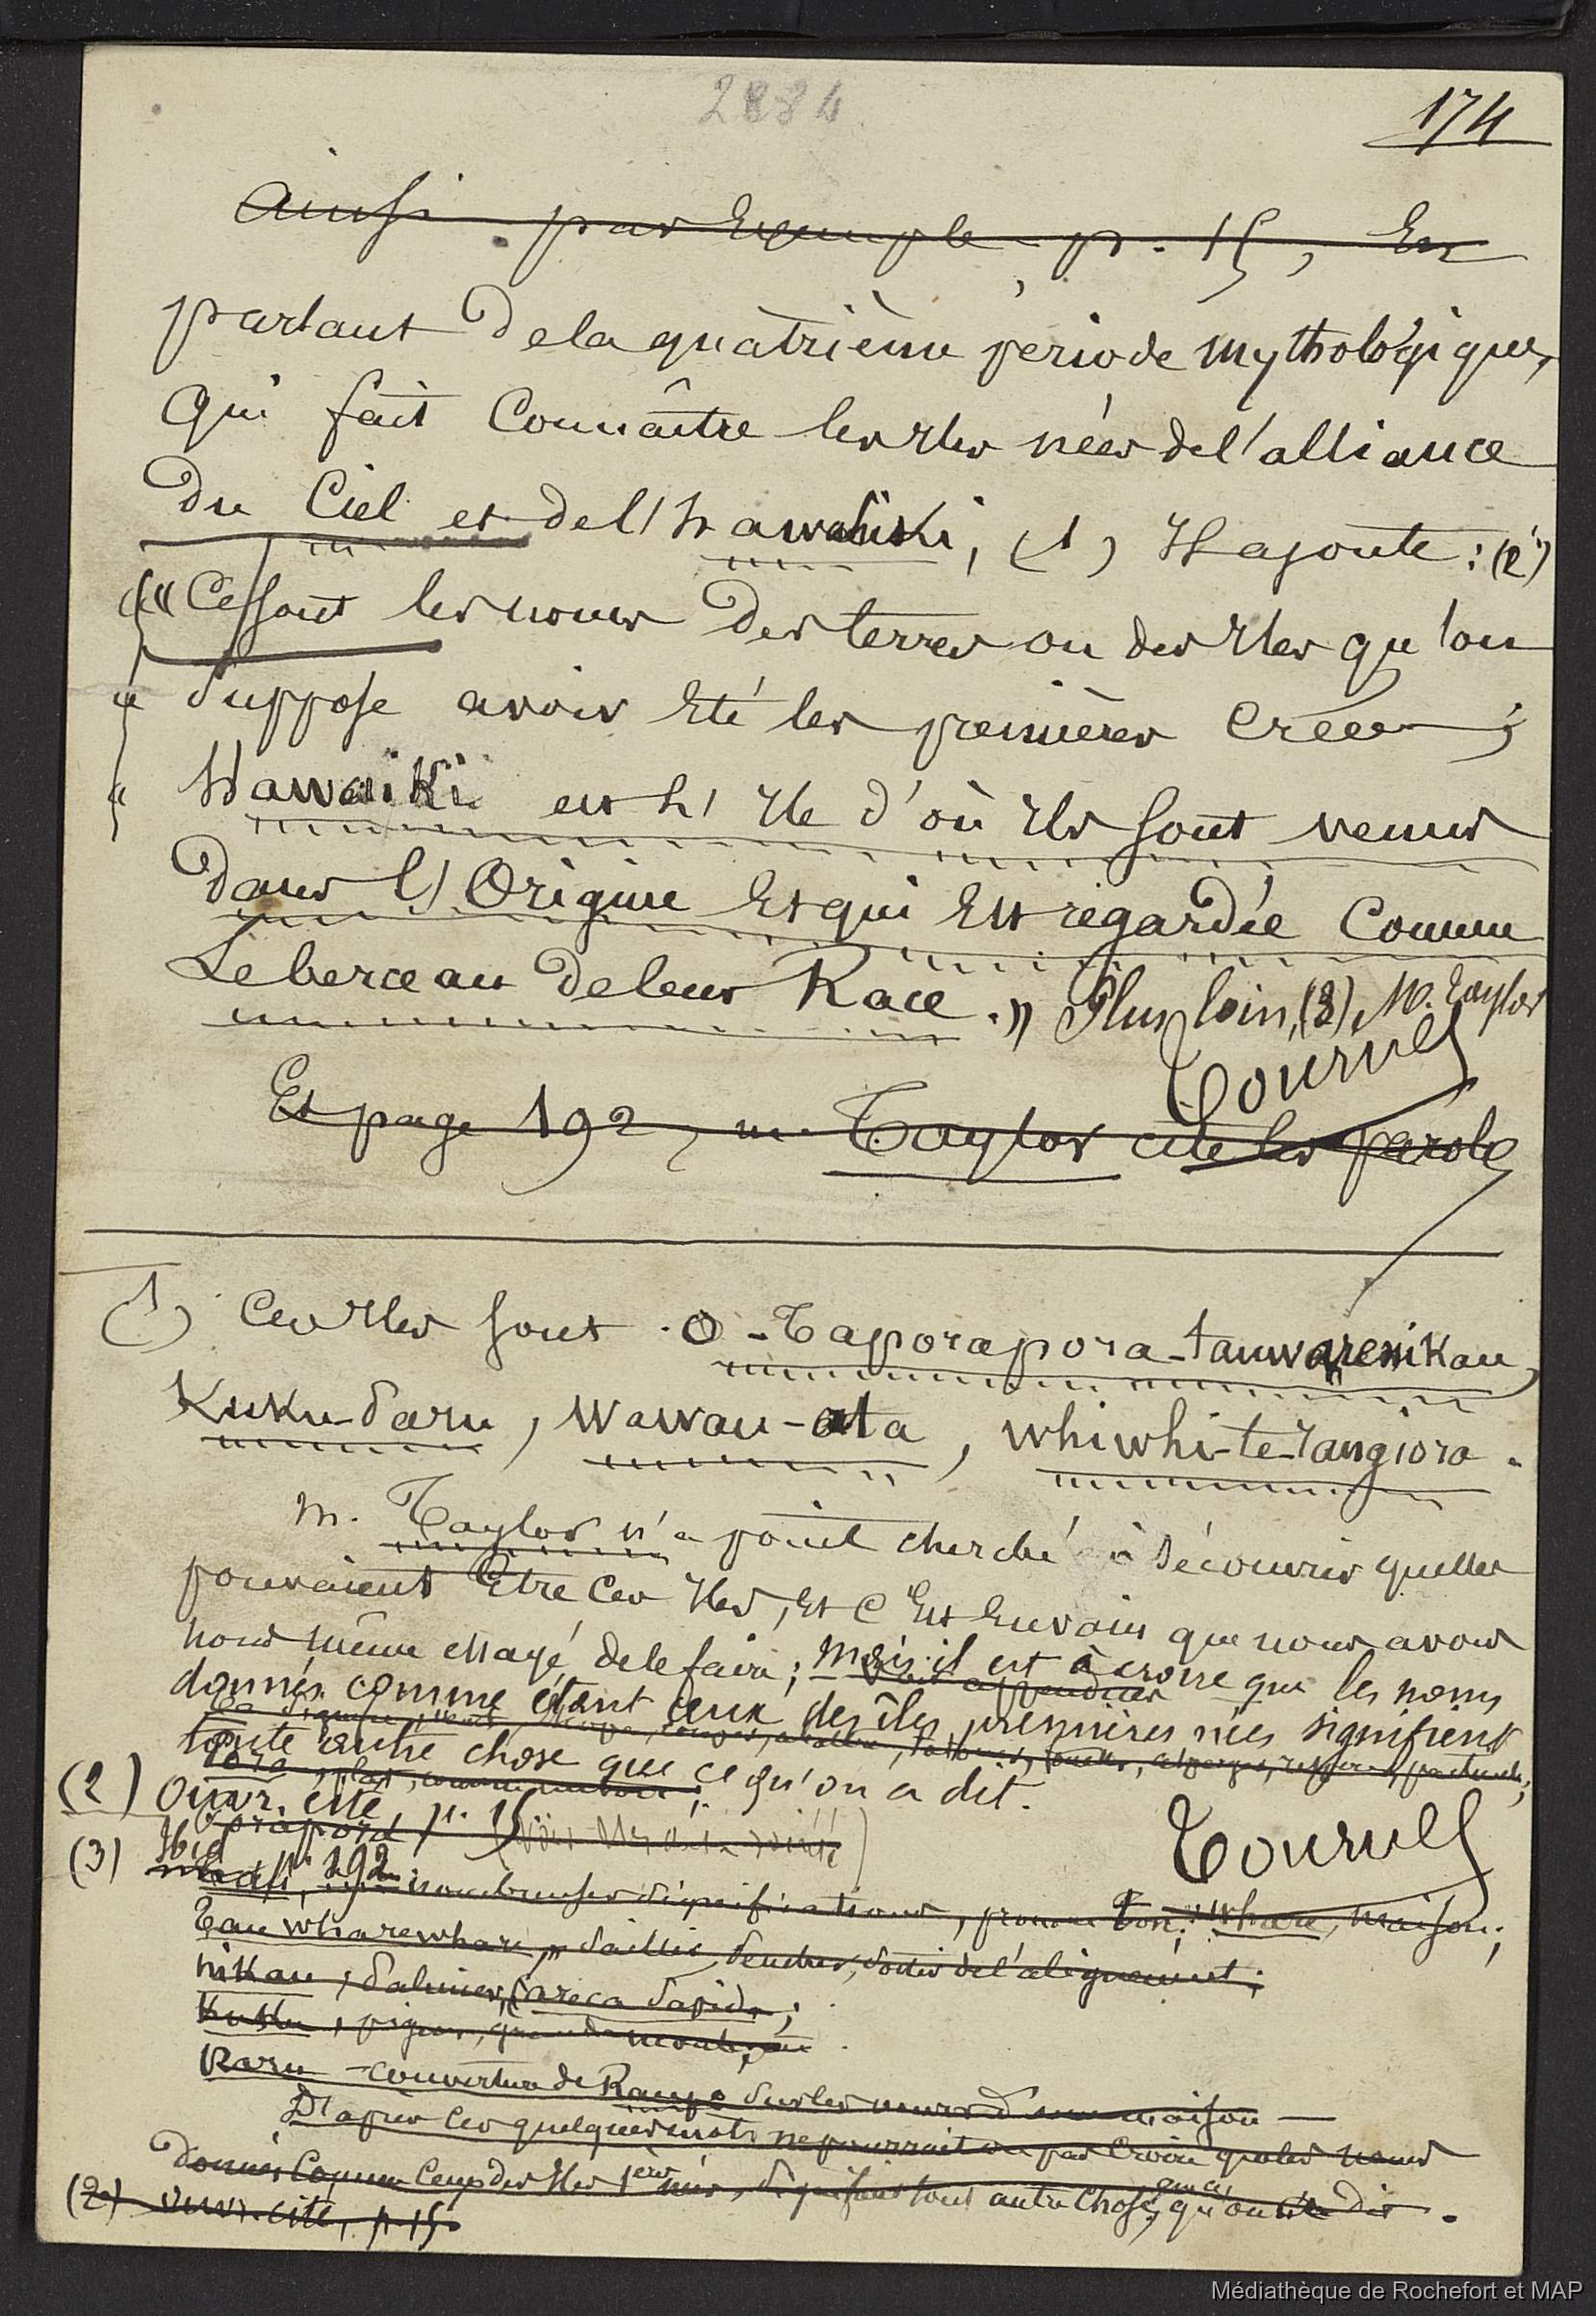 2884
174
Ainsi par Exemple p. 15, En
parlant de la quatrième période mythologique,
qui fait Connaître les Iles nées de l'alliance
du Ciel et de l'hawaïki, (1) Il ajoute : (2)
« Ce sont les noms des terres ou des Iles qu'on
« Suppose avoir Eté les premières Créées ;
« Hawaïki est l'Ile d'où Ils sont venus
dans l'Origine Et qui Est regardée Comme
Le berceau de leur Race. » Plus loin, (3), M. Taylor
Tournez
Et page 192, m. Taylor cite les parole
(1) Ces Iles sont : O-Taporapora-tauwarenikau,
Kuku-Paru, Wawau-ata, whiwhi-te-rangiora.
M. Taylor n'a point cherché à découvrir quelles
pouvaient Etre Ces Iles, Et C'Est En vain que nous avons
nous même essayé de le faire ; mais il est à croire que les noms
donnés comme étant ceux des îles premières nées signifient
toute autre chose que ce qu'on a dit.
(2) Ouvr. cité, p. 15
Tournez
(3) Ibid p. 192 nombreuses significations, whare, maison ;
Tau wharewhare, saillie, sortir de l'alignement ;
nikau, Palmier, (areca sapida ;
Kuku, pigeon, grande
Paru - couverture de Raupo sur les murs d'une maison —
D'après ces quelques mots ne pourrait on pas Croire que les noms
donnés Comme Ceux des Iles 1ères nées, signifient tout autre Chose, que ce qu'on a dit.
(2) ouvr. cité, p. 15.
Médiathèque de Rochefort et MAP